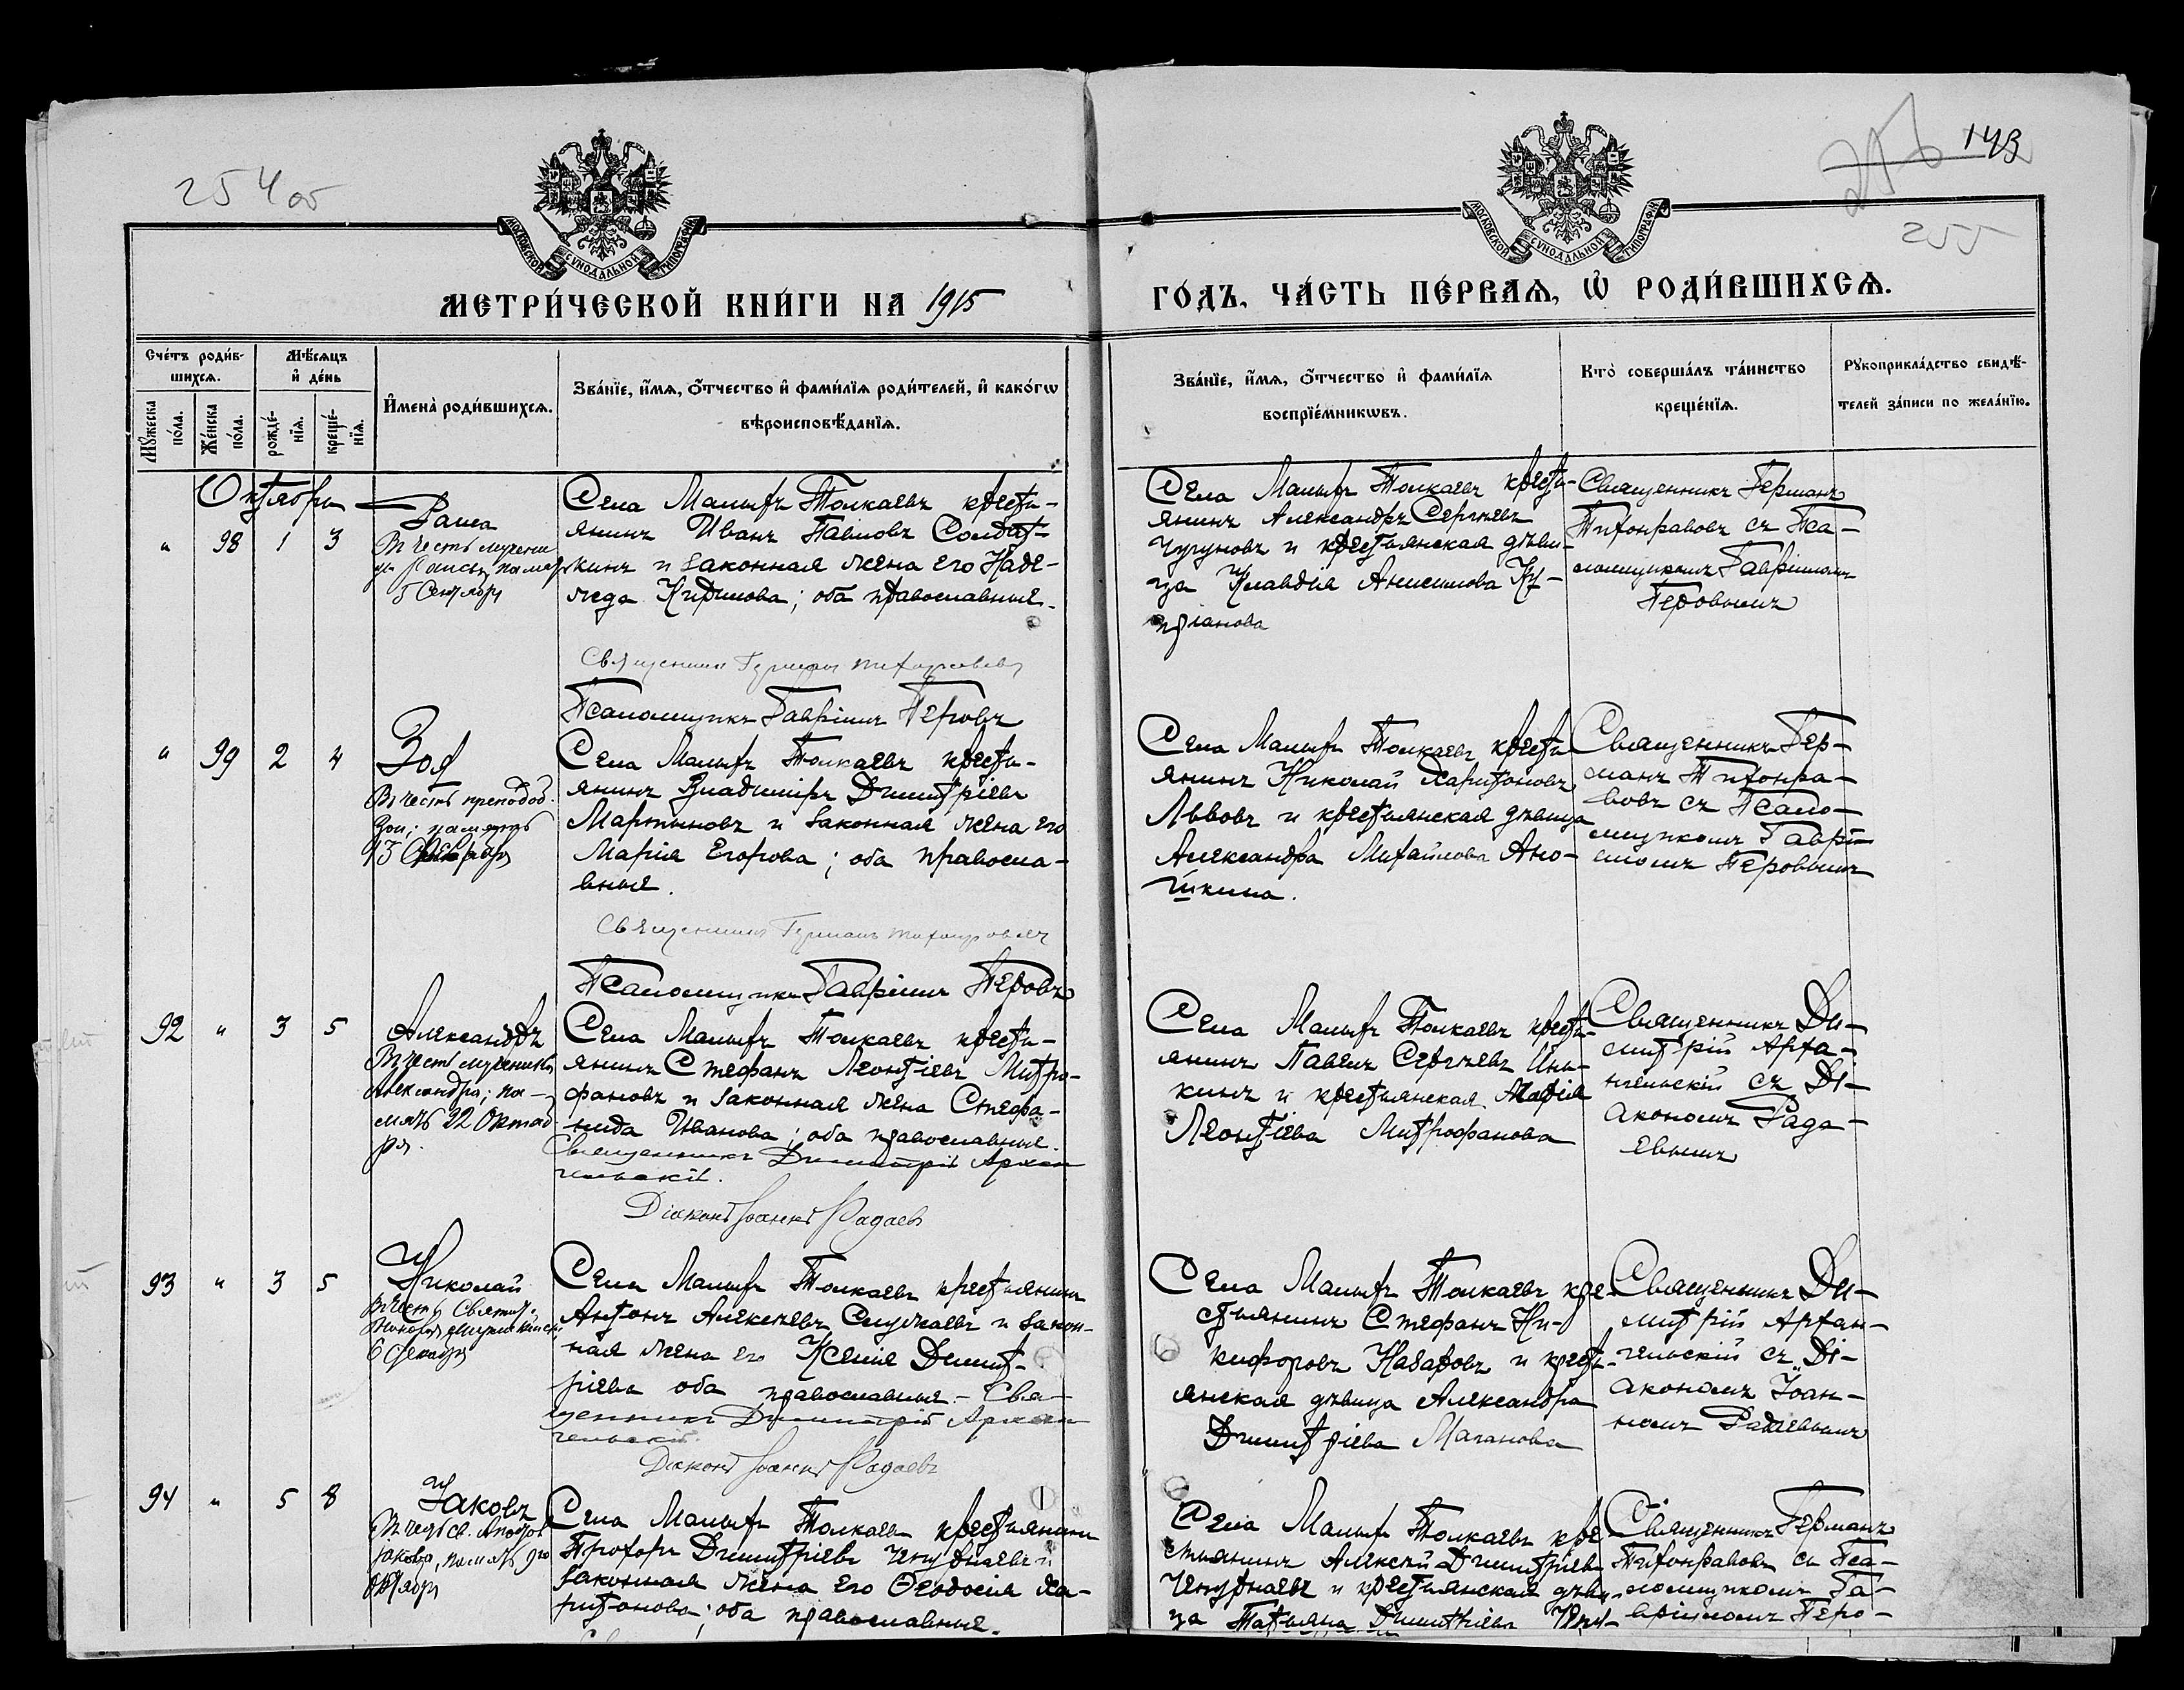 254 об
143
255
МОСКОВСКОЙ СѴНОДАЛЬНОЙ ТИПОГРАФІИ
МОСКОВСКОЙ СѴНОДАЛЬНОЙ ТИПОГРАФІИ
МЕТРИ́ЧЕСКОЙ КНИ́ГИ НА 1915
ГО́ДЪ, ЧА́СТЬ ПЕ́РВАѦ, Ѽ РОДИ́ВШИХСѦ.
Сче́тъ роди́в-
шихсѧ.
Мѣ́сѧцъ
и҆ де́нь
Мꙋ́жеска
по́ла.
Же́нска
по́ла.
рожде́-
нїѧ.
креще́-
нїѧ.
И҆мена̀ роди́вшихсѧ.
Зва́нїе, и҆́мѧ, ѻ҆́тчество и҆ фами́лїѧ роди́телей, и҆ како́гѡ
вѣроисповѣ́данїѧ.
Зва́нїе, и҆́мѧ, ѻ҆́тчество и҆ фами́лїѧ
воспрїе́мникѡвъ.
Кто̀ соверша́лъ та́инство
креще́нїѧ.
Рꙋкоприкла́дство свидѣ́-
телей за́писи по жела́нїю.
Октябрь
" 98 1 3
Раиса
Въ честь мучени
цы Раисы, память
5 Сентября
Села Малыхъ Толкаевъ кресть-
янинъ Иванъ Павловъ Солдат-
кинъ и законная жена его Наде-
жда Кирилова; оба православные.
Священникъ Германъ Тихонравовъ
Псаломщикъ Гавріилъ Перовъ
Села Малыхъ Толкаевъ кресть-
янинъ Александръ Сергѣевъ
Чугуновъ и крестьянская дѣви-
ца Клавдія Анисимова Ку-
пріанова
Священникъ Германъ
Тихонравовъ съ Пса-
ломщикомъ Гавріиломъ
Перовымъ
" 99 2 4
Зоя
Въ честь преподоб.
Зои; память
13 Февраля
Села Малыхъ Толкаевъ кресть-
янинъ Владиміръ Димитріевъ
Мартыновъ и законная жена его
Марія Егорова; оба правосла-
вные.
Священникъ Германъ Тихонравовъ
Псаломщикъ Гавріилъ Перовъ
Села Малыхъ Толкаевъ кресть-
янинъ Николай Харитоновъ
Львовъ и крестьянская дѣвица
Александра Михайлова Ано-
шкина.
Священникъ Гер-
манъ Тихонра-
вовъ съ Псало-
мщикомъ Гаврі-
иломъ Перовымъ
92 " 3 5
Александръ
Въ честь мученика
Александра; па-
мять 22 Октяб
ря.
Села Малыхъ Толкаевъ кресть-
янинъ Стефанъ Леонтіевъ Митро-
фановъ и законная жена Стефа-
нида Иванова; оба православные.
Священникъ Димитрій Архан
гельскій.
Діаконъ Іоаннъ Радаевъ
Села Малыхъ Толкаевъ кресть-
янинъ Павелъ Сергѣевъ Инь-
кинъ и крестьянская Марія
Леонтіева Митрофанова
Священникъ Ди-
митрій Арха-
нгельскій съ Ді-
акономъ Рада-
евымъ
93 " 3 5
Николай
Въ честь Святит.
Николая Мурликійск.
6 Декабря
Села Малыхъ Толкаевъ крестьянинъ
Антонъ Алексѣевъ Служаевъ и закон-
ная жена его Ксенія Димит-
ріева оба православные. - Свя-
щенникъ Димитрій Архан
гельскій.
Діаконъ Іоаннъ Радаевъ
Села Малыхъ Толкаевъ кре-
стьянинъ Стефанъ Ни-
кифоровъ Назаровъ и кресть-
янская дѣвица Александра
Димитріева Маганова
Священникъ Ди-
митрій Архан-
гельскій съ Ді-
акономъ Іоан-
номъ Радаевымъ
94 " 5 8
Іаковъ
Въ честь св. Апостола
Іакова, память 9го
Октября
Села Малыхъ Толкаевъ крестьянинъ
Прохоръ Димитріевъ Чепурнаевъ и
законная жена его Ѳеодосія Ха-
ритонова; оба православные.
Села Малыхъ Толкаевъ кре-
стьянинъ Алексѣй Димитріевъ
Чепурнаевъ и крестьянская дѣви-
ца Татьяна Димитріева
Священникъ Германъ
Тихонравовъ съ Пса-
ломщикомъ Га-
вріиломъ Перо-